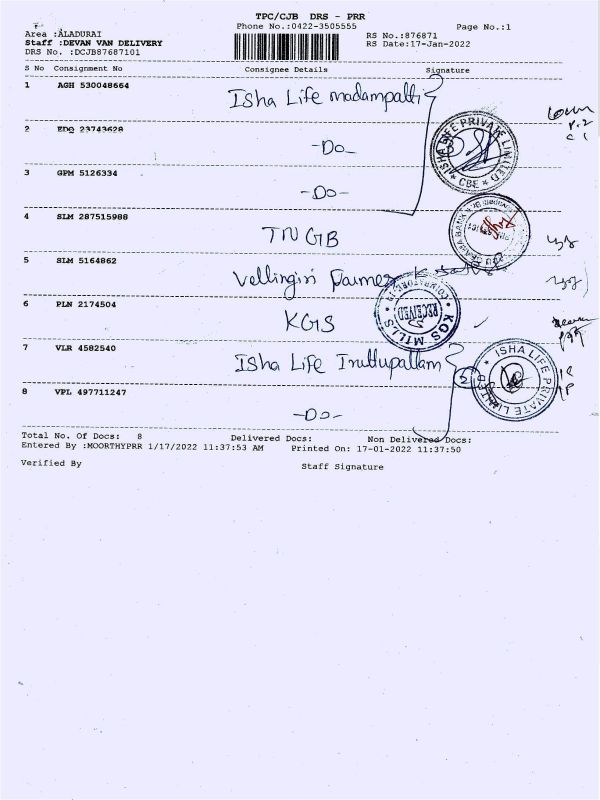 TPC/CJB DRS - PRR
Phone No.:0422-3505555 Page No.:1
Area :ALADURAI
Staff :DEVAN VAN DELIVERY
DRS No. :DCJB87687101
RS No.:876871
RS Date:17-Jan-2022
S No Consignment No Consignee Details Signature
1 AGH 530048664 Isha Life madampatti
2 EDQ 23743628 -Do-
3 GPM 5126334 -Do-
ISHA LIFE PRIVATE LIMITED
* CBE *
4 SLM 287515988 TNGB
5 SLM 5164862 Vellingiri
6 PLN 2174504 KGS
KGS MILLS
RECEIVED
7 VLR 4582540 Isha Life Iruttupallam
8 VPL 497711247 -Do-
5
ISHA LIFE PRIVATE
Total No. Of Docs: 8 Delivered Docs: Non Delivered Docs:
Entered By :MOORTHYPRR 1/17/2022 11:37:53 AM Printed On: 17-01-2022 11:37:50
Verified By Staff Signature